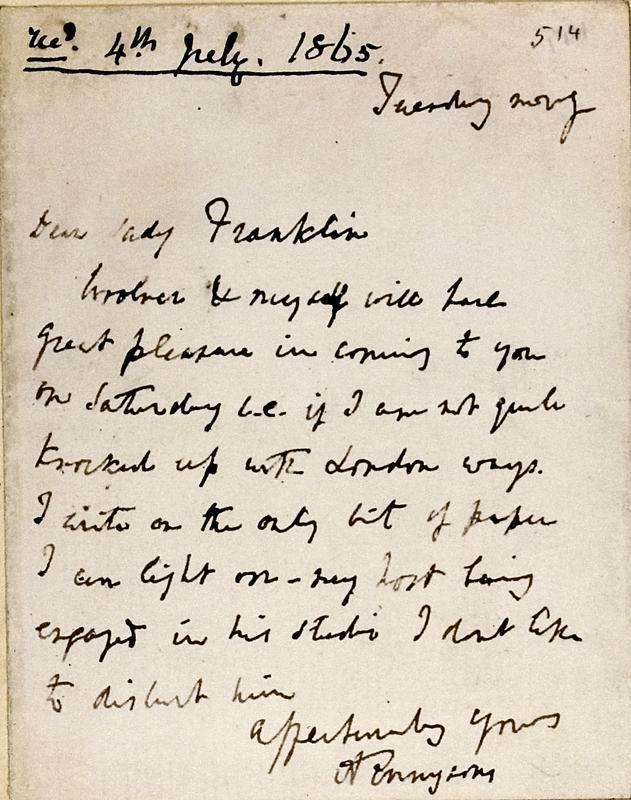 Recd. 4th July. 1865.
514
Tuesday morng
Dear Lady Franklin
Woolner & myself will have
great pleasure in coming to you
on Saturday i.e. if I am not quite
knocked up with London ways.
I write on the only bit of paper
I can light on - my host being
engaged in his studio I dont like
to disturb him
affectionately yours
ATennyson